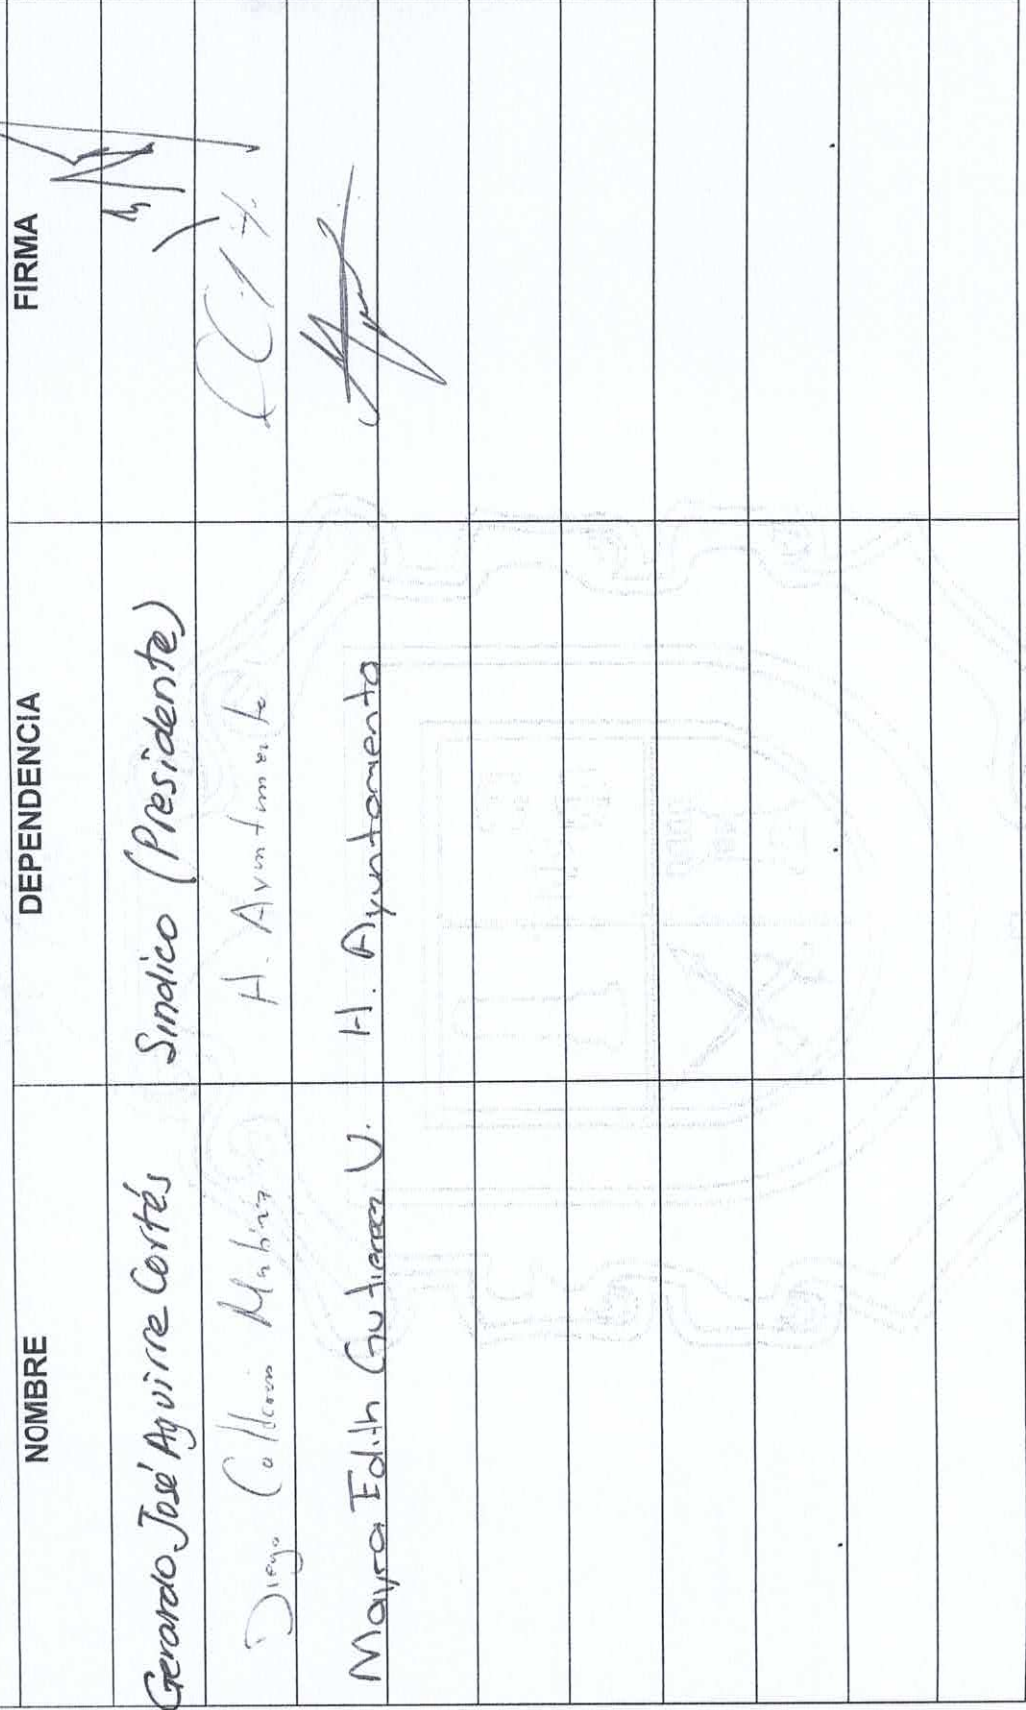 NOMBRE DEPENDENCIA FIRMA
Gerardo José Aguirre Cortés Sindico (Presidente)
Diego Calderon H. Ayuntamiento
Mayra Edith Gutierrez V. H. Ayuntamiento